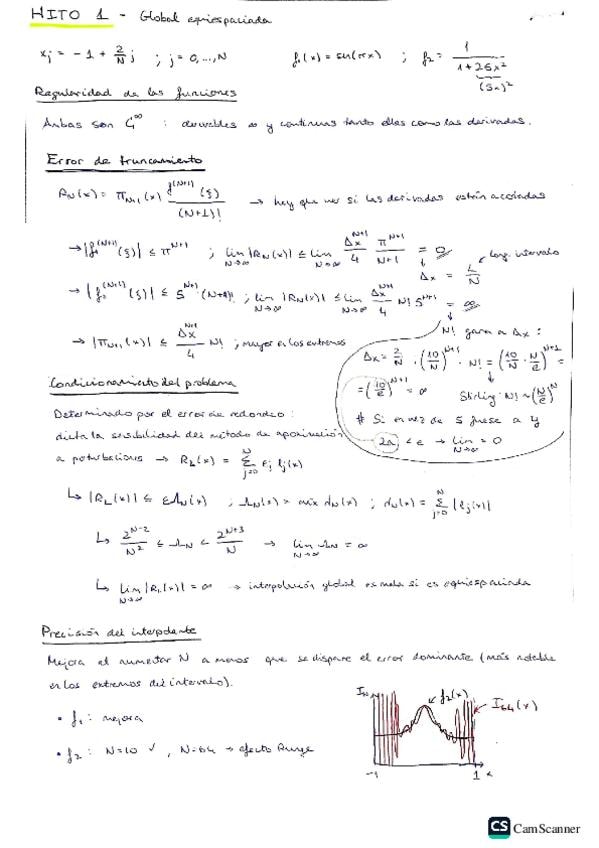 HITO 1 - Global equiespaciada
x_j = -1 + 2/N j ; j = 0, ..., N f_1(x) = sen(πx) ; f_2 = 1/(1+25x²)
(5x)²
Regularidad de las funciones
Ambas son C^∞ : derivables ∞ y continuas tanto ellas como las derivadas.
Error de truncamiento
R_N(x) = π_{N+1}(x) f^{(N+1)}(ξ)/(N+1)! → hay que ver si las derivadas están acotadas
→ |f_1^{(N+1)}(ξ)| ≤ π^{N+1} ; lim_{N→∞} |R_N(x)| ≤ lim_{N→∞} Δx^{N+1}/4 π^{N+1}/N+1 = 0
Δx = L/N → long. intervalo
→ |f_2^{(N+1)}(ξ)| ≤ 5^{N+1} (N+1)! ; lim_{N→∞} |R_N(x)| ≤ lim_{N→∞} Δx^{N+1}/4 N! 5^{N+1} = ∞
→ |π_{N+1}(x)| ≤ Δx^{N+1}/4 N! ; mayor en los extremos
N! gana a Δx :
Δx = 2/N → (10/N)^{N+1} · N! = (10/N · N/e)^{N+1} =
= (10/e)^{N+1} = ∞
Stirling: N! ~ (N/e)^N
# Si en vez de 5 fuese a y
2a < e → lim_{N→∞} = 0
Condicionamiento del problema
Determinado por el error de redondeo :
dicta la sensibilidad del método de aproximación
a perturbaciones → R_L(x) = Σ_{j=0}^{N} ε_j l_j(x)
↳ |R_L(x)| ≤ ε Λ_N(x) ; Λ_N(x) = máx λ_N(x) ; λ_N(x) = Σ_{j=0}^{N} |l_j(x)|
↳ 2^{N-2}/N² ≤ Λ_N < 2^{N+3}/N → lim_{N→∞} Λ_N = ∞
↳ lim_{N→∞} |R_L(x)| = ∞ → interpolación global es mala si es equiespaciada
Precisión del interpolante
Mejora al aumentar N a menos que se dispare el error dominante (más notable
en los extremos del intervalo).
• f_1 : mejora
• f_2 : N=10 ✓, N=64 → efecto Runge
I_N f_2(x) I_64(x)
-1 1 x
CS CamScanner